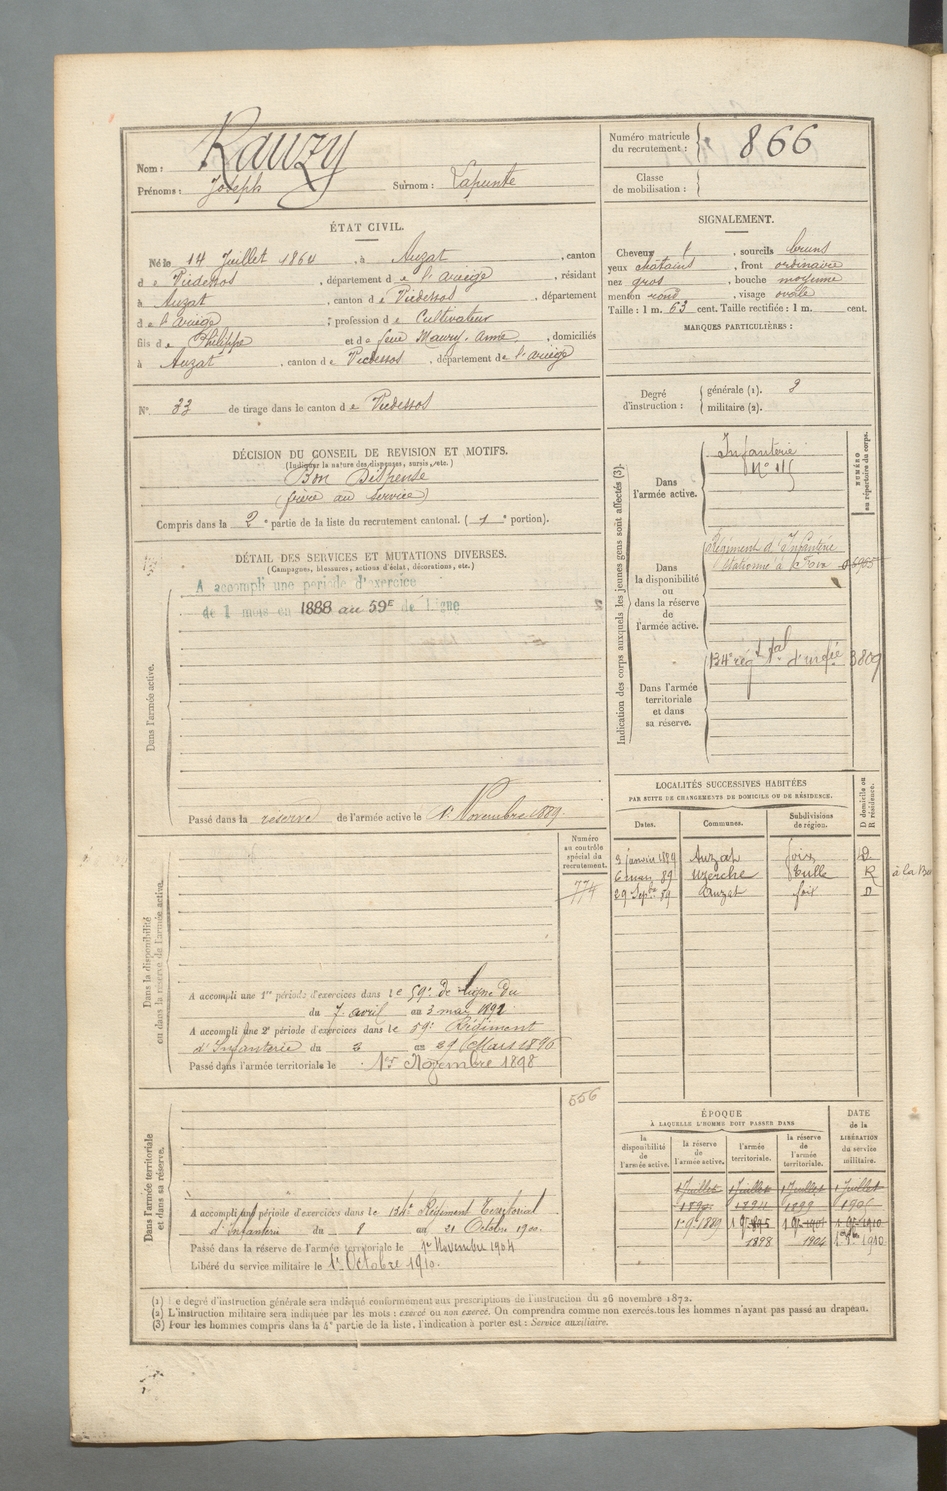 Nom : Rauzy
Prénoms : Joseph Surnom : Lapuntte
Numéro matricule
du recrutement : 866
Classe
de mobilisation :
ÉTAT CIVIL.
Né le 14 Juillet 1864, à Auzat, canton
de Vicdessos, département de l'ariège, résidant
à Auzat, canton de Vicdessos, département
de l'ariège, profession de Cultivateur
fils de Philippe et de feue Maury Anne, domiciliés
à Auzat, canton de Vicdessos, département de l'ariège
N° 33 de tirage dans le canton de Vicdessos
SIGNALEMENT.
Cheveux, sourcils bruns
yeux chatains, front ordinaire
nez gros, bouche moyenne
menton rond, visage ovale
Taille : 1 m. 63 cent. Taille rectifiée : 1 m. cent.
MARQUES PARTICULIÈRES :
Degré
d'instruction :
générale (1). 3
militaire (2).
DÉCISION DU CONSEIL DE REVISION ET MOTIFS.
(Indiquer la nature des dispenses, sursis, etc.)
Bon Dispensé
(frère au service)
Compris dans la 2e partie de la liste du recrutement cantonal. (1e portion).
DÉTAIL DES SERVICES ET MUTATIONS DIVERSES.
(Campagnes, blessures, actions d'éclat, décorations, etc.)
Dans l'armée active.
A accompli une période d'exercice
de 1 mois en 1888 au 59E de Ligne
Passé dans la réserve de l'armée active le 1er Novembre 1889.
Indication des corps auxquels les jeunes gens sont affectés (3).
NUMÉRO
au répertoire du corps.
Dans
l'armée active.
Infanterie
N° 115
Dans
la disponibilité
ou
dans la réserve
de
l'armée active.
Régiment d'Infanterie
Stationné à Foix
Dans l'armée
territoriale
et dans
sa réserve.
134e régt tal d'infie 3809
LOCALITÉS SUCCESSIVES HABITÉES
PAR SUITE DE CHANGEMENTS DE DOMICILE OU DE RÉSIDENCE.
Dates. Communes. Subdivisions
de région. D domicile ou
R résidence.
3 janvier 1889 Auzat foix D
6 mars 89 Uzerche Tulle R
29 Septbre 89 Auzat foix D
Dans la disponibilité
ou dans la réserve de l'armée active.
Numéro
au contrôle
spécial du
recrutement.
774
A accompli une 1re période d'exercices dans le 59e de ligne du
du 7 avril au 3 mai 1892
A accompli une 2e période d'exercices dans le 59e Régiment
d'Infanterie du 2 au 29 Mars 1896
Passé dans l'armée territoriale le 1er Novembre 1898
Dans l'armée territoriale
et dans sa réserve.
556
A accompli une période d'exercices dans le 134e Régiment Territorial
d'Infanterie du 8 au 21 Octobre 1900.
Passé dans la réserve de l'armée territoriale le 1er Novembre 1904
Libéré du service militaire le 1er Octobre 1910.
ÉPOQUE
À LAQUELLE L'HOMME DOIT PASSER DANS
DATE
de la
LIBÉRATION
du service
militaire.
la
disponibilité
de
l'armée active.
la réserve
de
l'armée active.
l'armée
territoriale.
la réserve
de
l'armée
territoriale.
1 Juillet 1 Juillet 1 Juillet 1 Juillet
1898 1904 1910
(1) Le degré d'instruction générale sera indiqué conformément aux prescriptions de l'instruction du 26 novembre 1872.
(2) L'instruction militaire sera indiquée par les mots : exercé ou non exercé. On comprendra comme non exercés tous les hommes n'ayant pas passé au drapeau.
(3) Pour les hommes compris dans la 4e partie de la liste, l'indication à porter est : Service auxiliaire.